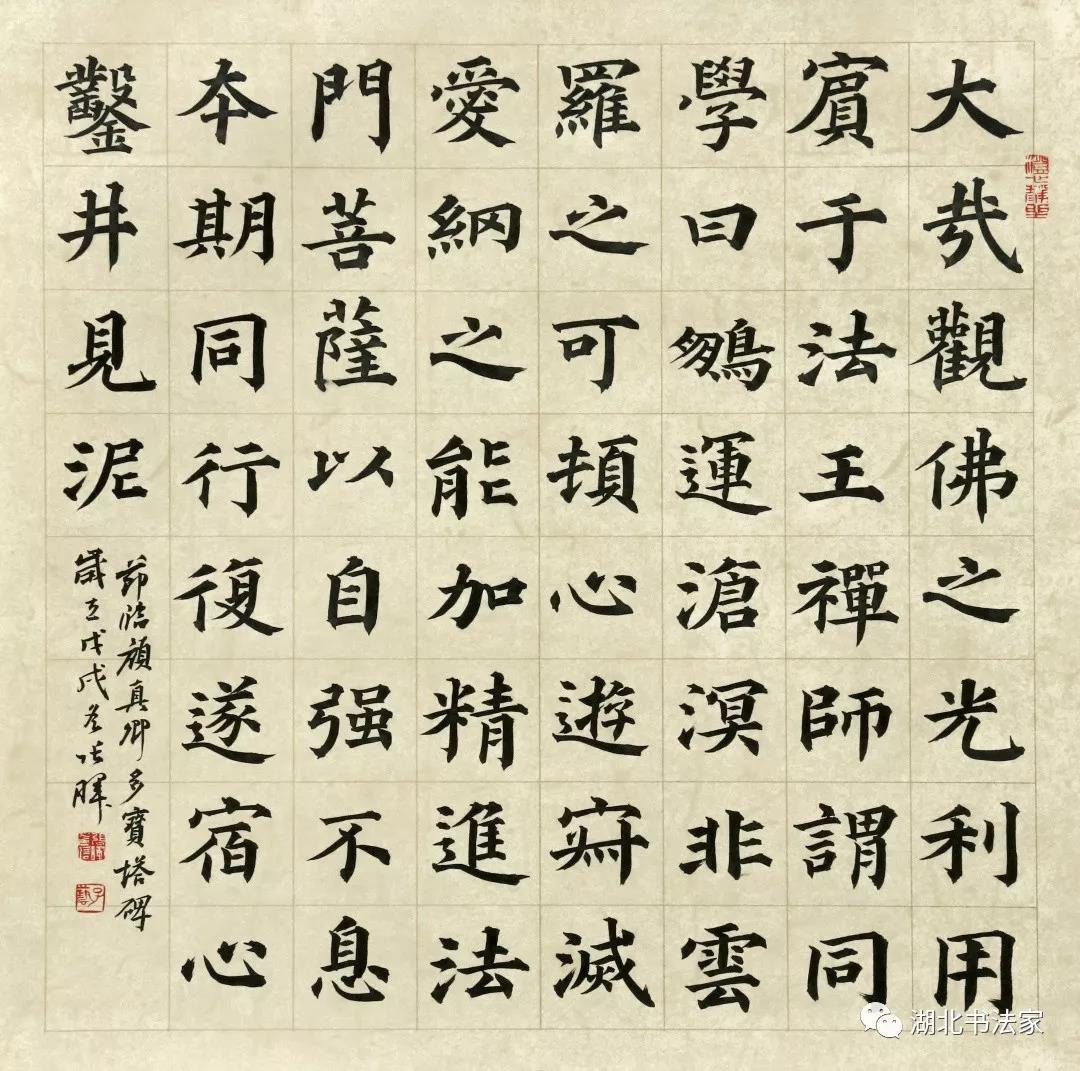 大哉觀佛之光利用
賔于法王禪師謂同
學曰鵬運滄溟非雲
羅之可頓心遊寂滅
愛網之能加精進法
門菩薩以自强不息
本期同行復遂宿心
鑿井見泥
節臨顔真卿多寶塔碑
歲在戊戌冬張暉
湖北书法家